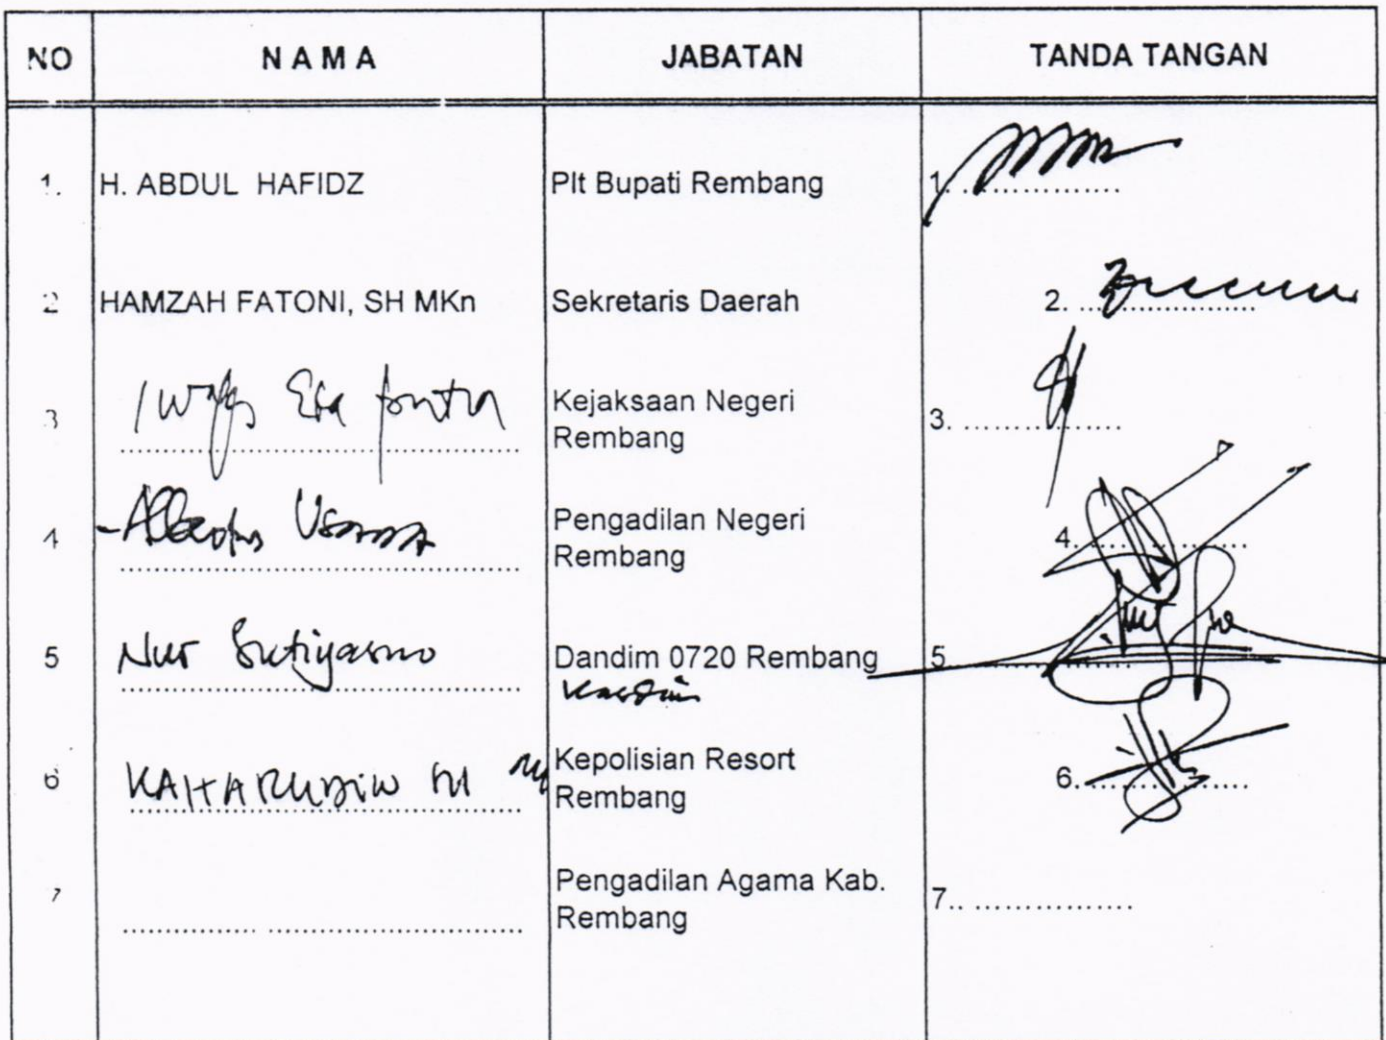 NO NAMA JABATAN TANDA TANGAN
1. H. ABDUL HAFIDZ Plt Bupati Rembang 1. ..................
2 HAMZAH FATONI, SH MKn Sekretaris Daerah 2. ....................
3 Kejaksaan Negeri 3. ..................
Rembang
4 Pengadilan Negeri 4. ....................
Rembang
5 Nur Sutiyasno Dandim 0720 Rembang 5
6 KAHARUDIN Kepolisian Resort 6. ..................
Rembang
7 Pengadilan Agama Kab. 7.. ..................
Rembang